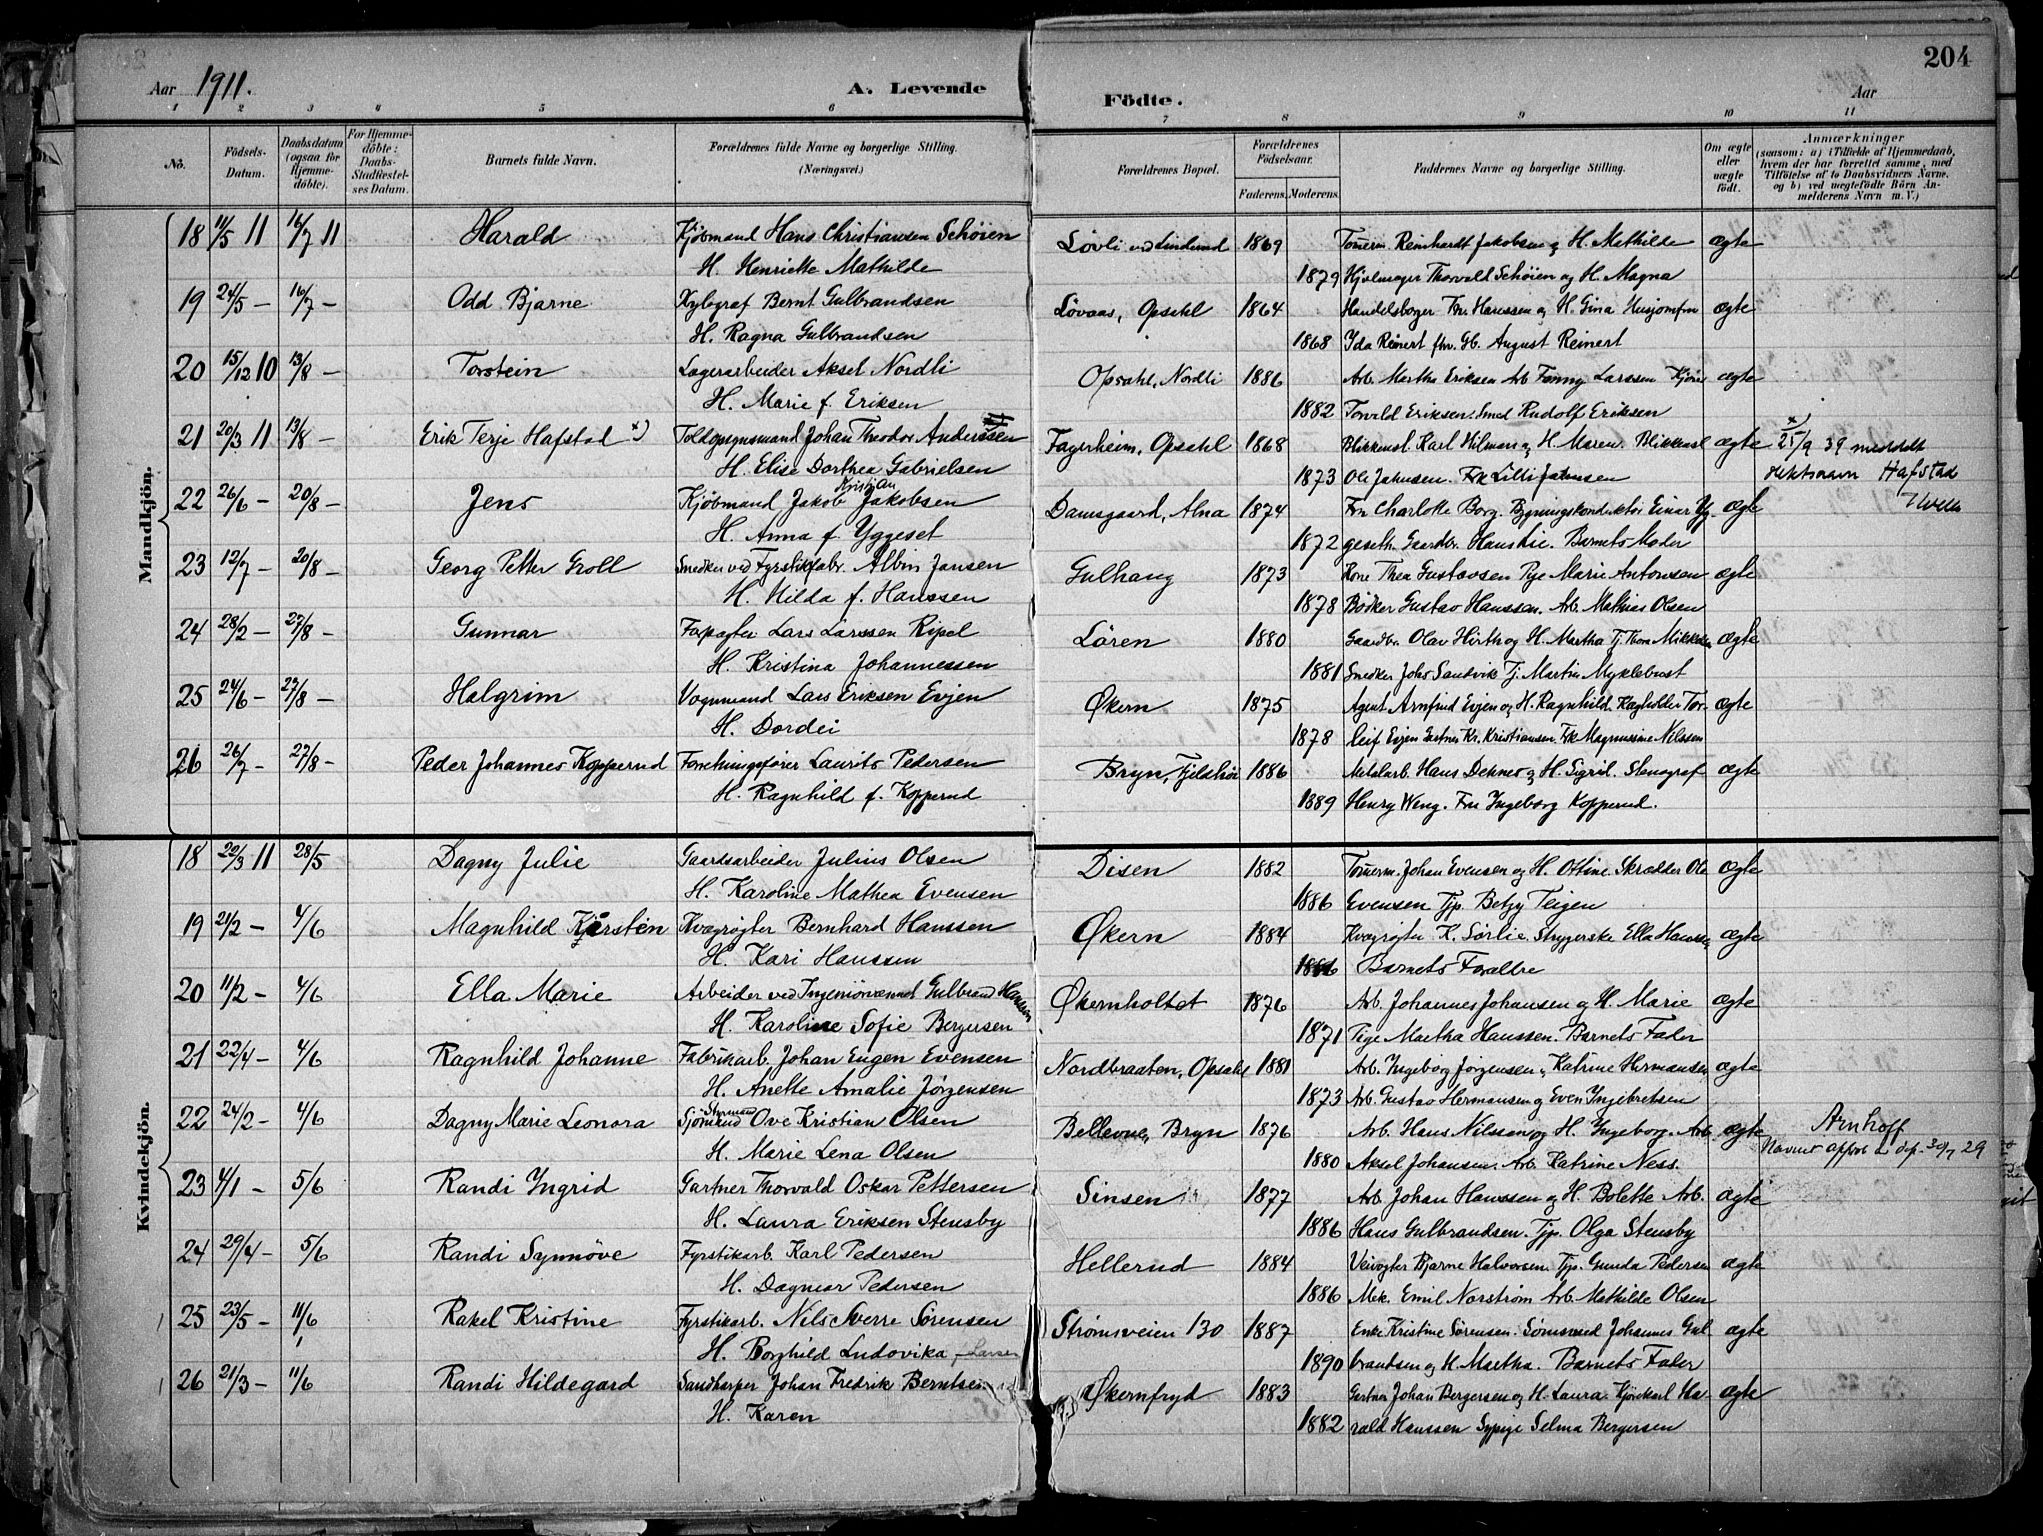 204
Aar 1911. A. Levende Födte. Aar
1 2 3 4 5 6 7 8 9 10 11
No. Födsels-Datum. Daabsdatum (ogsaa for Hjemme-döbte). For Hjemme-döbte: Daabs-Stadfæstel-ses Datum. Barnets fulde Navn. Forældrenes fulde Navne og borgerlige Stilling. (Næringsvei.) Forældrenes Bopæl. Forældrenes Födselsaar. Faderens. Moderens. Faddernes Navne og borgerlige Stilling. Om ægte eller uægte födt. Anmærkninger (saasom: a) i Tilfælde af Hjemmedaab, hvem der har forrettet samme, med Tilföielse af to Daabsvidners Navne, og b) ved uægtefödte Börn An-melderens Navn m. V.)
Mandkjön.
18 11/5 11 16/7 11 Harald Kjöbmand Hans Christiansen Schöien Løvli ved Linderud 1869 Tömerm. Reinhardt Jakobsen og H. Mathilde ægte
H. Henriette Mathilde 1879 Hjulmager Thorvald Schöien og H. Magna
19 24/5 - 16/7 - Odd Bjarne Xylograf Bernt Gulbrandsen Løvaas, Opsahl 1864 Handelsborger Fr. Hanssen og H. Gina ægte
H. Ragna Gulbrandsen 1868 Yda Reinert August Reinert
20 15/12 10 13/8 - Torstein Lagerarbeider Aksel Nordli Opsahl, Nordli 1886 Arb. Martha Eriksen Arb Fanny Larssen ægte
H. Marie f. Eriksen 1882 Torvald Eriksen. Smed Rudolf Eriksen
21 20/3 11 13/8 - Erik Terje Hafstad x) Toldopsynsmand Johan Theodor Anderssen Fagerheim, Opsahl 1868 Blikkensl. Karl Hilman og H. Maren. Blikkensl ægte x) 25/9 39 meddelt
H. Elise Dorthea Gabrielsen 1873 Ole Jahnsen. Frk Lilli Jahnsen slektsnavn Hafstad
22 26/6 - 20/8 - Jens Kjöbmand Jakob Kristian Jakobsen Damsgaard, Alna 1874 Fru Charlotte Borg. Bygningskonduktör Einar Yg- ægte
H. Anna f. Yggeset 1872 geseth. Gaardbr. Hans Lie. Barnets Moder
23 12/7 - 20/8 - Georg Petter Groll Snedker ved Fyrstikfabr. Albin Jansen Gulhaug 1873 Kone Thea Gustavsen Pige Marie Antonsen ægte
H. Hilda f. Hanssen 1878 Bödker Gustav Hanssen. Arb. Mathias Olsen
24 28/2 - 27/8 - Gunnar Forpagter Lars Larssen Ripel Lören 1880 Gaardbr. Olav Hirth og H. Martha Tj. Thora Mikkelsen ægte
H. Kristina Johannessen 1881 Snedker Johs Sandvik Tj. Martin Myklebust
25 24/6 - 27/8 - Halgrim Vognmand Lars Eriksen Evjen Økern 1875 Agent Arnfind Evjen og H. Ragnhild. Bagholder Tor- ægte
H. Dordei 1878 leif Evjen Gartner Kr. Kristiansen. Frk Magnusine Nilssen
26 26/7 - 27/8 - Peder Johannes Kopperud Forretningsförer Laurits Pedersen Bryn, Fjeldhöi 1886 Metalarb. Hans Dehnes og H. Sigrid. Stenograf ægte
H. Ragnhild f. Kopperud 1889 Henry Weng. Fru Ingeborg Kopperud.
Kvindekjön.
18 22/3 11 28/5 Dagny Julie Gaardsarbeider Julius Olsen Disen 1882 Tömerm. Johan Evensen og H. Ottine. Skrædder Ole ægte
H. Karoline Mathea Evensen 1886 Evensen Tjp. Betzy Teigen
19 21/2 - 4/6 Magnhild Kjersten Kvægrögter Bernhard Hanssen Økern 1884 Kvægrögter K. Sörlie. Strygerske Ella Hanssen ægte
H. Kari Hanssen 1886 Barnets Forældre
20 11/2 - 4/6 Ella Marie Arbeider ved Ingeniörvæsnet Gulbrand Hanssen Økernholtet 1876 Arb. Johannes Johansen og H. Marie ægte
H. Karoline Sofie Bergersen 1871 Pige Martha Hanssen. Barnets Fader
21 22/4 - 4/6 Ragnhild Johanne Fabrikarb. Johan Eugen Evensen Nordbraaten, Opsahl 1881 Arb. Ingeborg Jörgensen, Katrine Hermansen ægte
H. Anette Amalie Jörgensen 1873 Arb. Gustav Hermansen og Even Ingebretsen
22 24/2 - 4/6 Dagny Marie Leonora Sjömand Styrmand Ove Kristian Olsen Bellevue, Bryn 1876 Arb. Hans Nilssen og H. Ingeborg. Arb ægte Arnhoff
H. Marie Lena Olsen 1880 Aksel Johansen. Arb. Katrine Ness. Navnet approb. 30/7 29
23 4/1 - 5/6 Randi Ingrid Gartner Thorvald Oskar Pettersen Sinsen 1877 Arb. Johan Hanssen og H. Bolette Arb. ægte
H. Laura Eriksen Stensby 1886 Hans Gulbrandsen. Tjp. Olga Stensby
24 29/4 - 5/6 Randi Synnöve Fyrstikarb. Karl Pedersen Hellerud 1884 Veivogter Bjarne Halvorsen. Tjp. Gunda Pedersen ægte
H. Dagmar Pedersen 1886 Mek. Emil Norström Arb. Mathilde Olsen
25 23/5 - 11/6 Rakel Kristine Fyrstikarb. Nils Sverre Sörensen Strömsveien 130 1887 Enke Kristine Sörensen. Sömand Johannes Gul ægte
H. Borghild Ludovika f. Larsen 1890 brandsen og H. Martha. Barnets Fader
26 21/3 - 11/6 Randi Hildegard Sandharper Johan Fredrik Berntsen Økernfryd 1883 Gartner Johan Bergersen og H. Laura. Kjörekarl Ha- ægte
H. Karen 1882 rald Hanssen Sypige Selma Bergersen